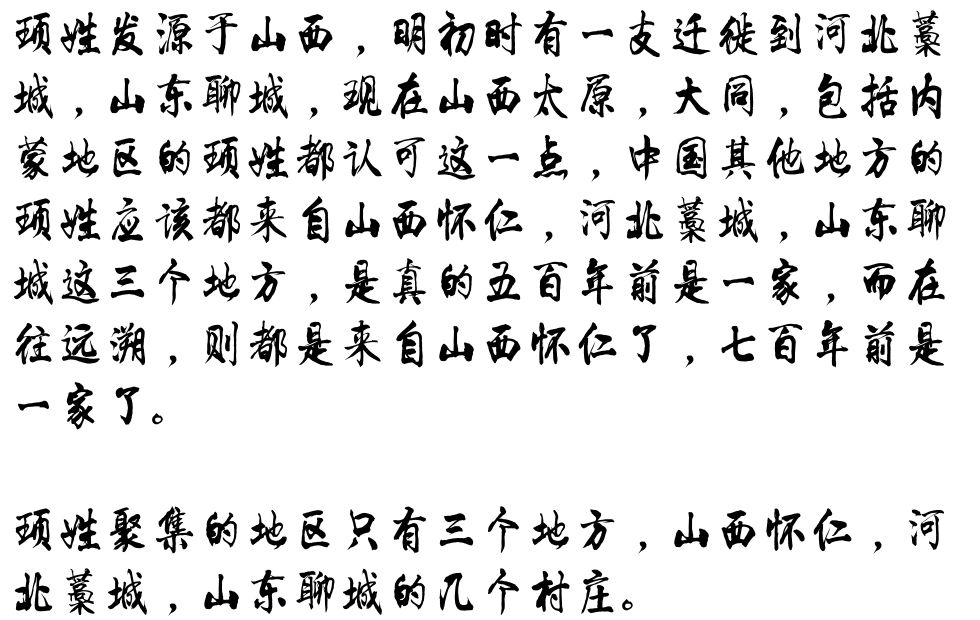 顼姓发源于山西，明初时有一支迁徙到河北藁
城，山东聊城，现在山西太原，大同，包括内
蒙地区的顼姓都认可这一点，中国其他地方的
顼姓应该都来自山西怀仁，河北藁城，山东聊
城这三个地方，是真的五百年前是一家，而在
往远溯，则都是来自山西怀仁了，七百年前是
一家了。
顼姓聚集的地区只有三个地方，山西怀仁，河
北藁城，山东聊城的几个村庄。